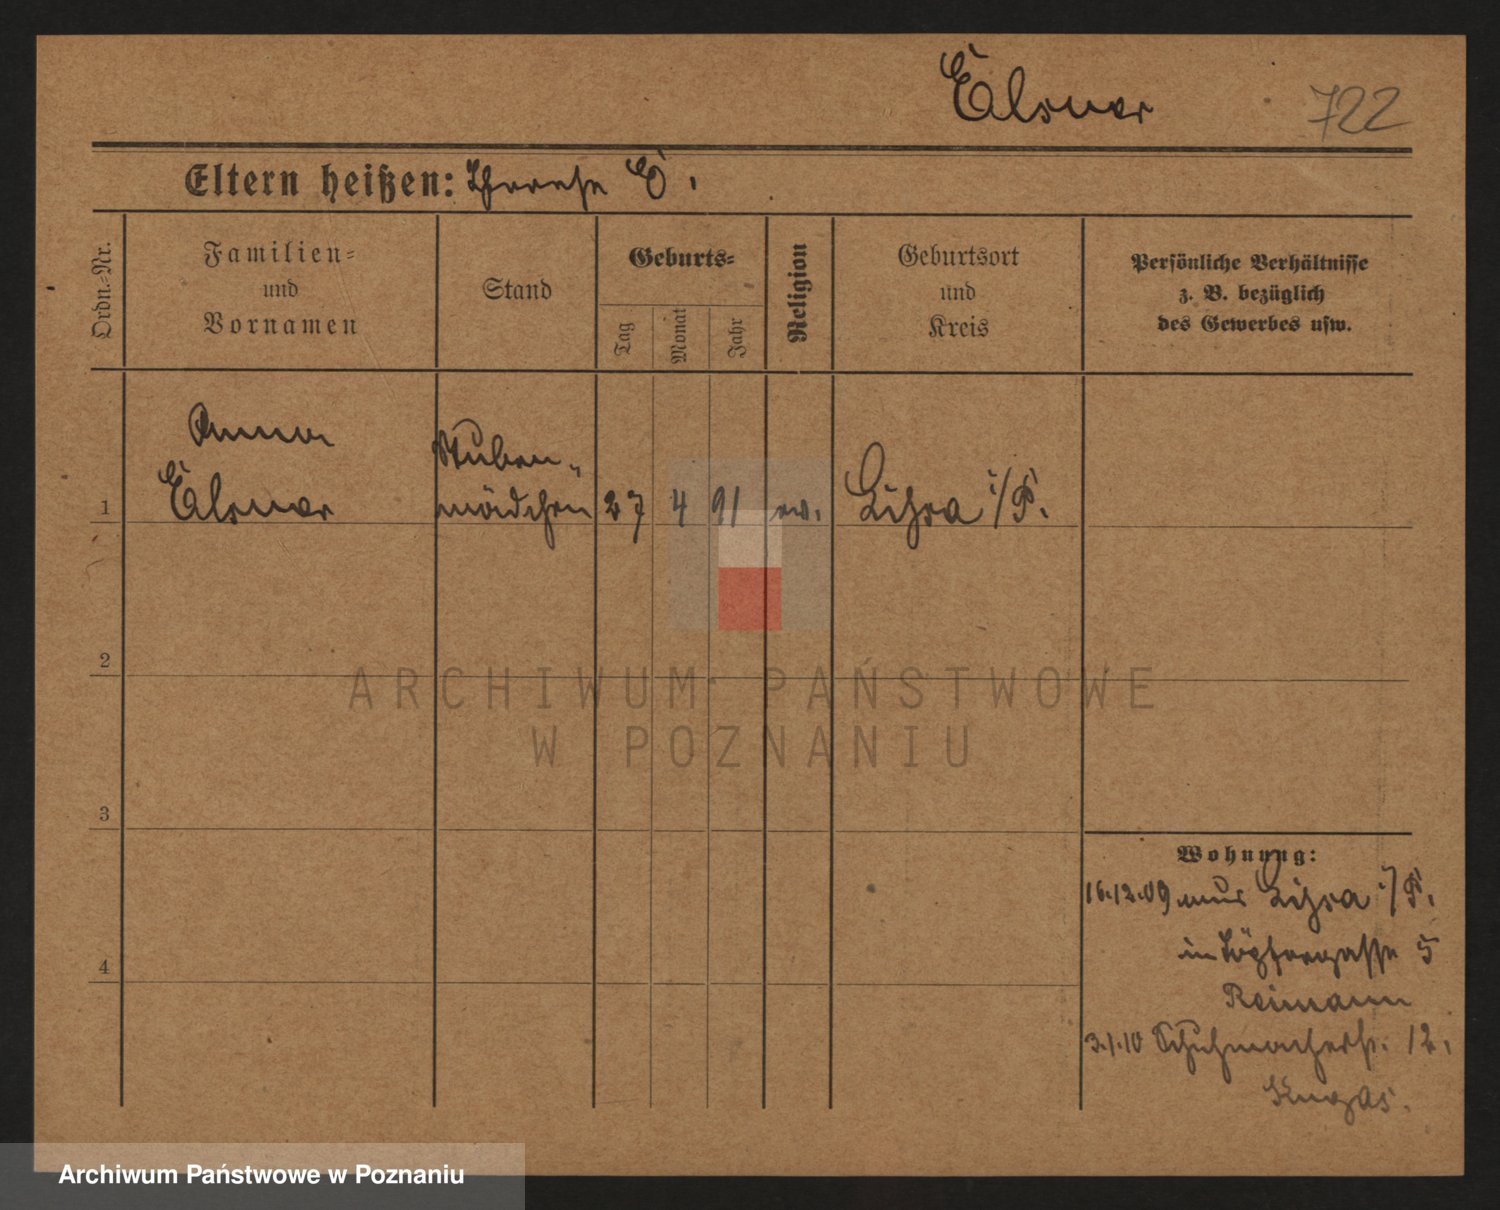 Elsner 722
Eltern heißen: Therese E.
Ordn.-Nr.
Familien-
und
Vornamen
Stand
Geburts-
Tag
Monat
Jahr
Religion
Geburtsort
und
Kreis
Persönliche Verhältnisse
z. B. bezüglich
des Gewerbes usw.
Anna
Elsner
Stuben-
mädchen
1
27 4 91 ev. Lissa i/P.
2
3
4
Wohnung:
16.12.09 aus Lissa i/P.
in Töpfergasse 5
Reimann
3.1.10 Schuhmacherstr. 12.
ARCHIWUM PAŃSTWOWE
W POZNANIU
Archiwum Państwowe w Poznaniu